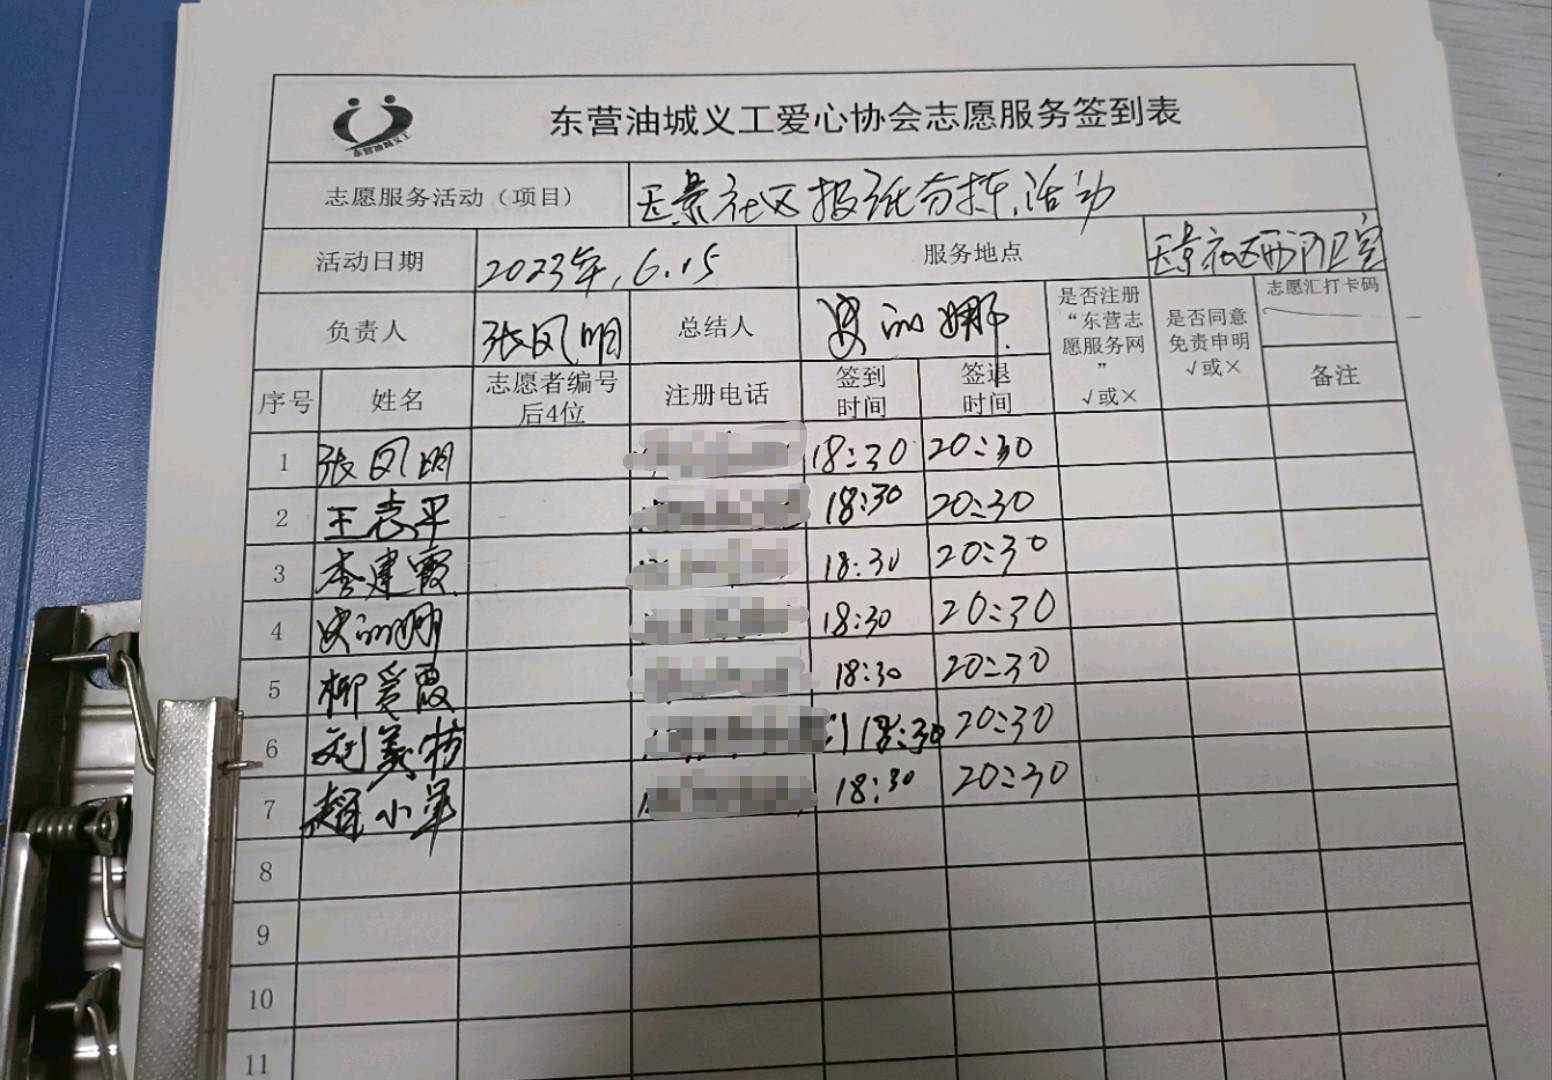 东营油城义工爱心协会志愿服务签到表
东营油城义工
志愿服务活动（项目） 社区报纸分拣活动
活动日期 2023年.6.15 服务地点
负责人 张凤明 总结人 史丽娜 是否注册“东营志愿服务网” √或× 是否同意免责申明 √或× 志愿汇打卡码
序号 姓名 志愿者编号后4位 注册电话 签到时间 签退时间 备注
1 张凤明 18:30 20:30
2 王志平 18:30 20:30
3 李建霞 18:30 20:30
4 史丽娜 18:30 20:30
5 柳爱霞 18:30 20:30
6 刘美 18:30 20:30
7 小军 18:30 20:30
8
9
10
11